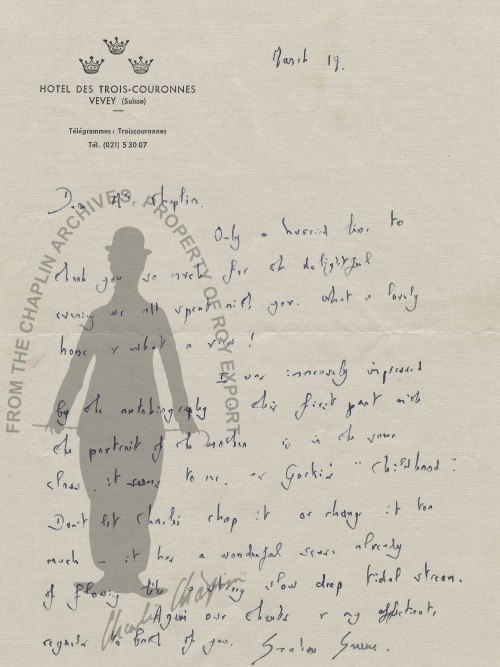 March 19.
HOTEL DES TROIS-COURONNES
VEVEY (Suisse)
Télégrammes: Troiscouronnes
Tél. (021) 5 30 07
Dear Mrs. Chaplin.
Only a hurried line to
thank you so much for the delightful
evening we all spent with you. What a lovely
home & what a view!
I was immensely impressed
by the autobiography this first part with
the portrait of the mother is in the same
class, it seems to me, as Gorki's "Childhood".
Don't let Charlie chop it or change it too
much – it has a wonderful sense already
of flowing like a strong slow deep tidal stream.
Again our thanks & my affectionate
regards to both of you. Graham Greene.
FROM THE CHAPLIN ARCHIVES, PROPERTY OF ROY EXPORT
Charlie Chaplin